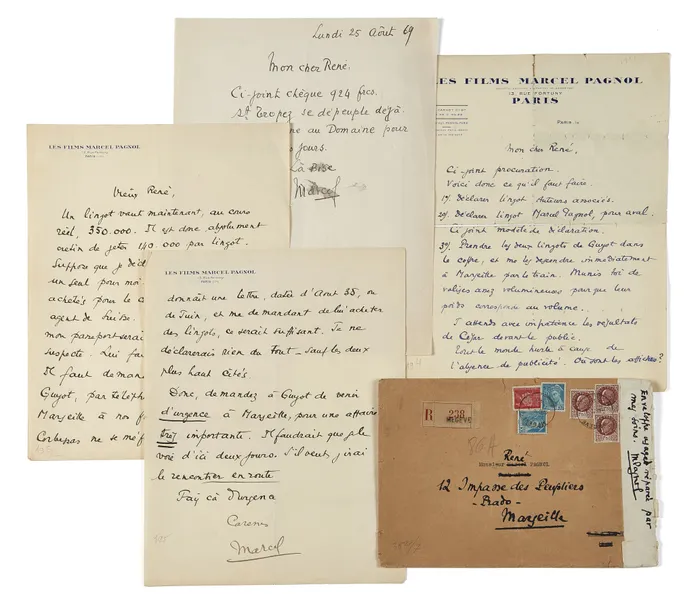 Lundi 25 Août 69
Mon cher René.
Ci-joint chèque 924 fres.
St Tropez se dépeuple déjà.
ne au Domaine pour
s jours.
La Bise
Marcel
LES FILMS MARCEL PAGNOL
13, RUE FORTUNY
PARIS
Paris, le
Mon cher René,
Ci-joint procuration.
Voici donc ce qu'il faut faire.
1°/. Déclarer lingot Auteurs associés.
2°/. Déclarer lingot Marcel Pagnol, pour aval.
Ci joint modèle de déclaration.
3°/. Prendre les deux lingots de Guyot dans
le coffre, et me les descendre immédiatement
à Marseille par le train. Munis toi de
valises assez volumineuses pour que leur
poids corresponde au volume.
J'attends avec impatience les résultats
de César devant le public.
Tout le monde hurle à cause de
l'absence de publicité. Où sont les affiches?
LES FILMS MARCEL PAGNOL
PARIS
Vieux René,
Un lingot vaut maintenant, au cours
réel, 350.000. Il est donc absolument
crétin de jeter 140.000 par lingot.
Suppose que je décl
un seul pour moi
achetés pour le c
agent de Suisse.
mon passeport serai
suspecte. Lui fai
Il faut demand
Guyot, par téléph
Marseille à nos f
Corbessas ne se mé
LES FILMS MARCEL PAGNOL
PARIS
donnait une lettre, datée d'Août 38, ou
de Juin, et me demandant de lui acheter
des lingots, ce serait suffisant. Je ne
déclarerais rien du tout - Sauf les deux
plus haut cités
Donc, demandez à Guyot de venir
d'urgence à Marseille, pour une affaire
trop importante. Il faudrait que je le
voie d'ici deux jours. S'il veut, j'irai
le rencontrer en route
Fay çà d'urgence
Marcel
R
238
MEGEVE
René
Monsieur PAGNOL
12 Impasse des Peupliers
- Prado -
Marseille
Enveloppe usagée réparée par
mes soins. MPagnol